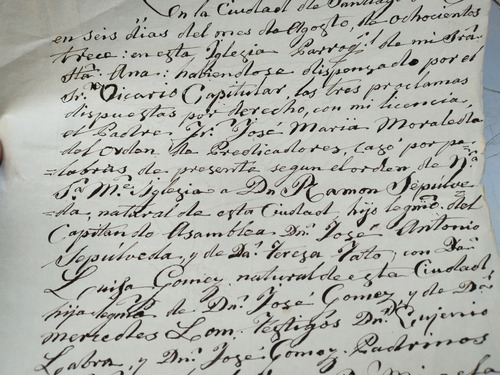 En la Ciudad de Santiago
en seis dias del mes de Agosto de ochocientos
trece: en esta Iglesia Parroql. de mi Srá
Sta. Ana: habiendose dispensado por el
Sr. Vicario Capitular, las tres proclamas
dispuestas por derecho, con mi licencia,
el Padre Fr. José Maria Moraleda
del Orden de Predicadores, casó por pa-
=labras de presente segun el orden de N.a
S.a M.e Iglesia a Dn. Ramon Sepulve-
da, natural de esta Ciudad, hijo legmo. del
Capitan de Asamblea Dn. José Antonio
Sepúlveda, y de Da. Teresa con Da.
Luisa Gomez, natural de esta Ciudad,
hija legma. de Dn. José Gomez, y de Da.
mercedes Lom. Testigos Dn. Eugenio
Labra, y Dn. José Gomez. Padrinos